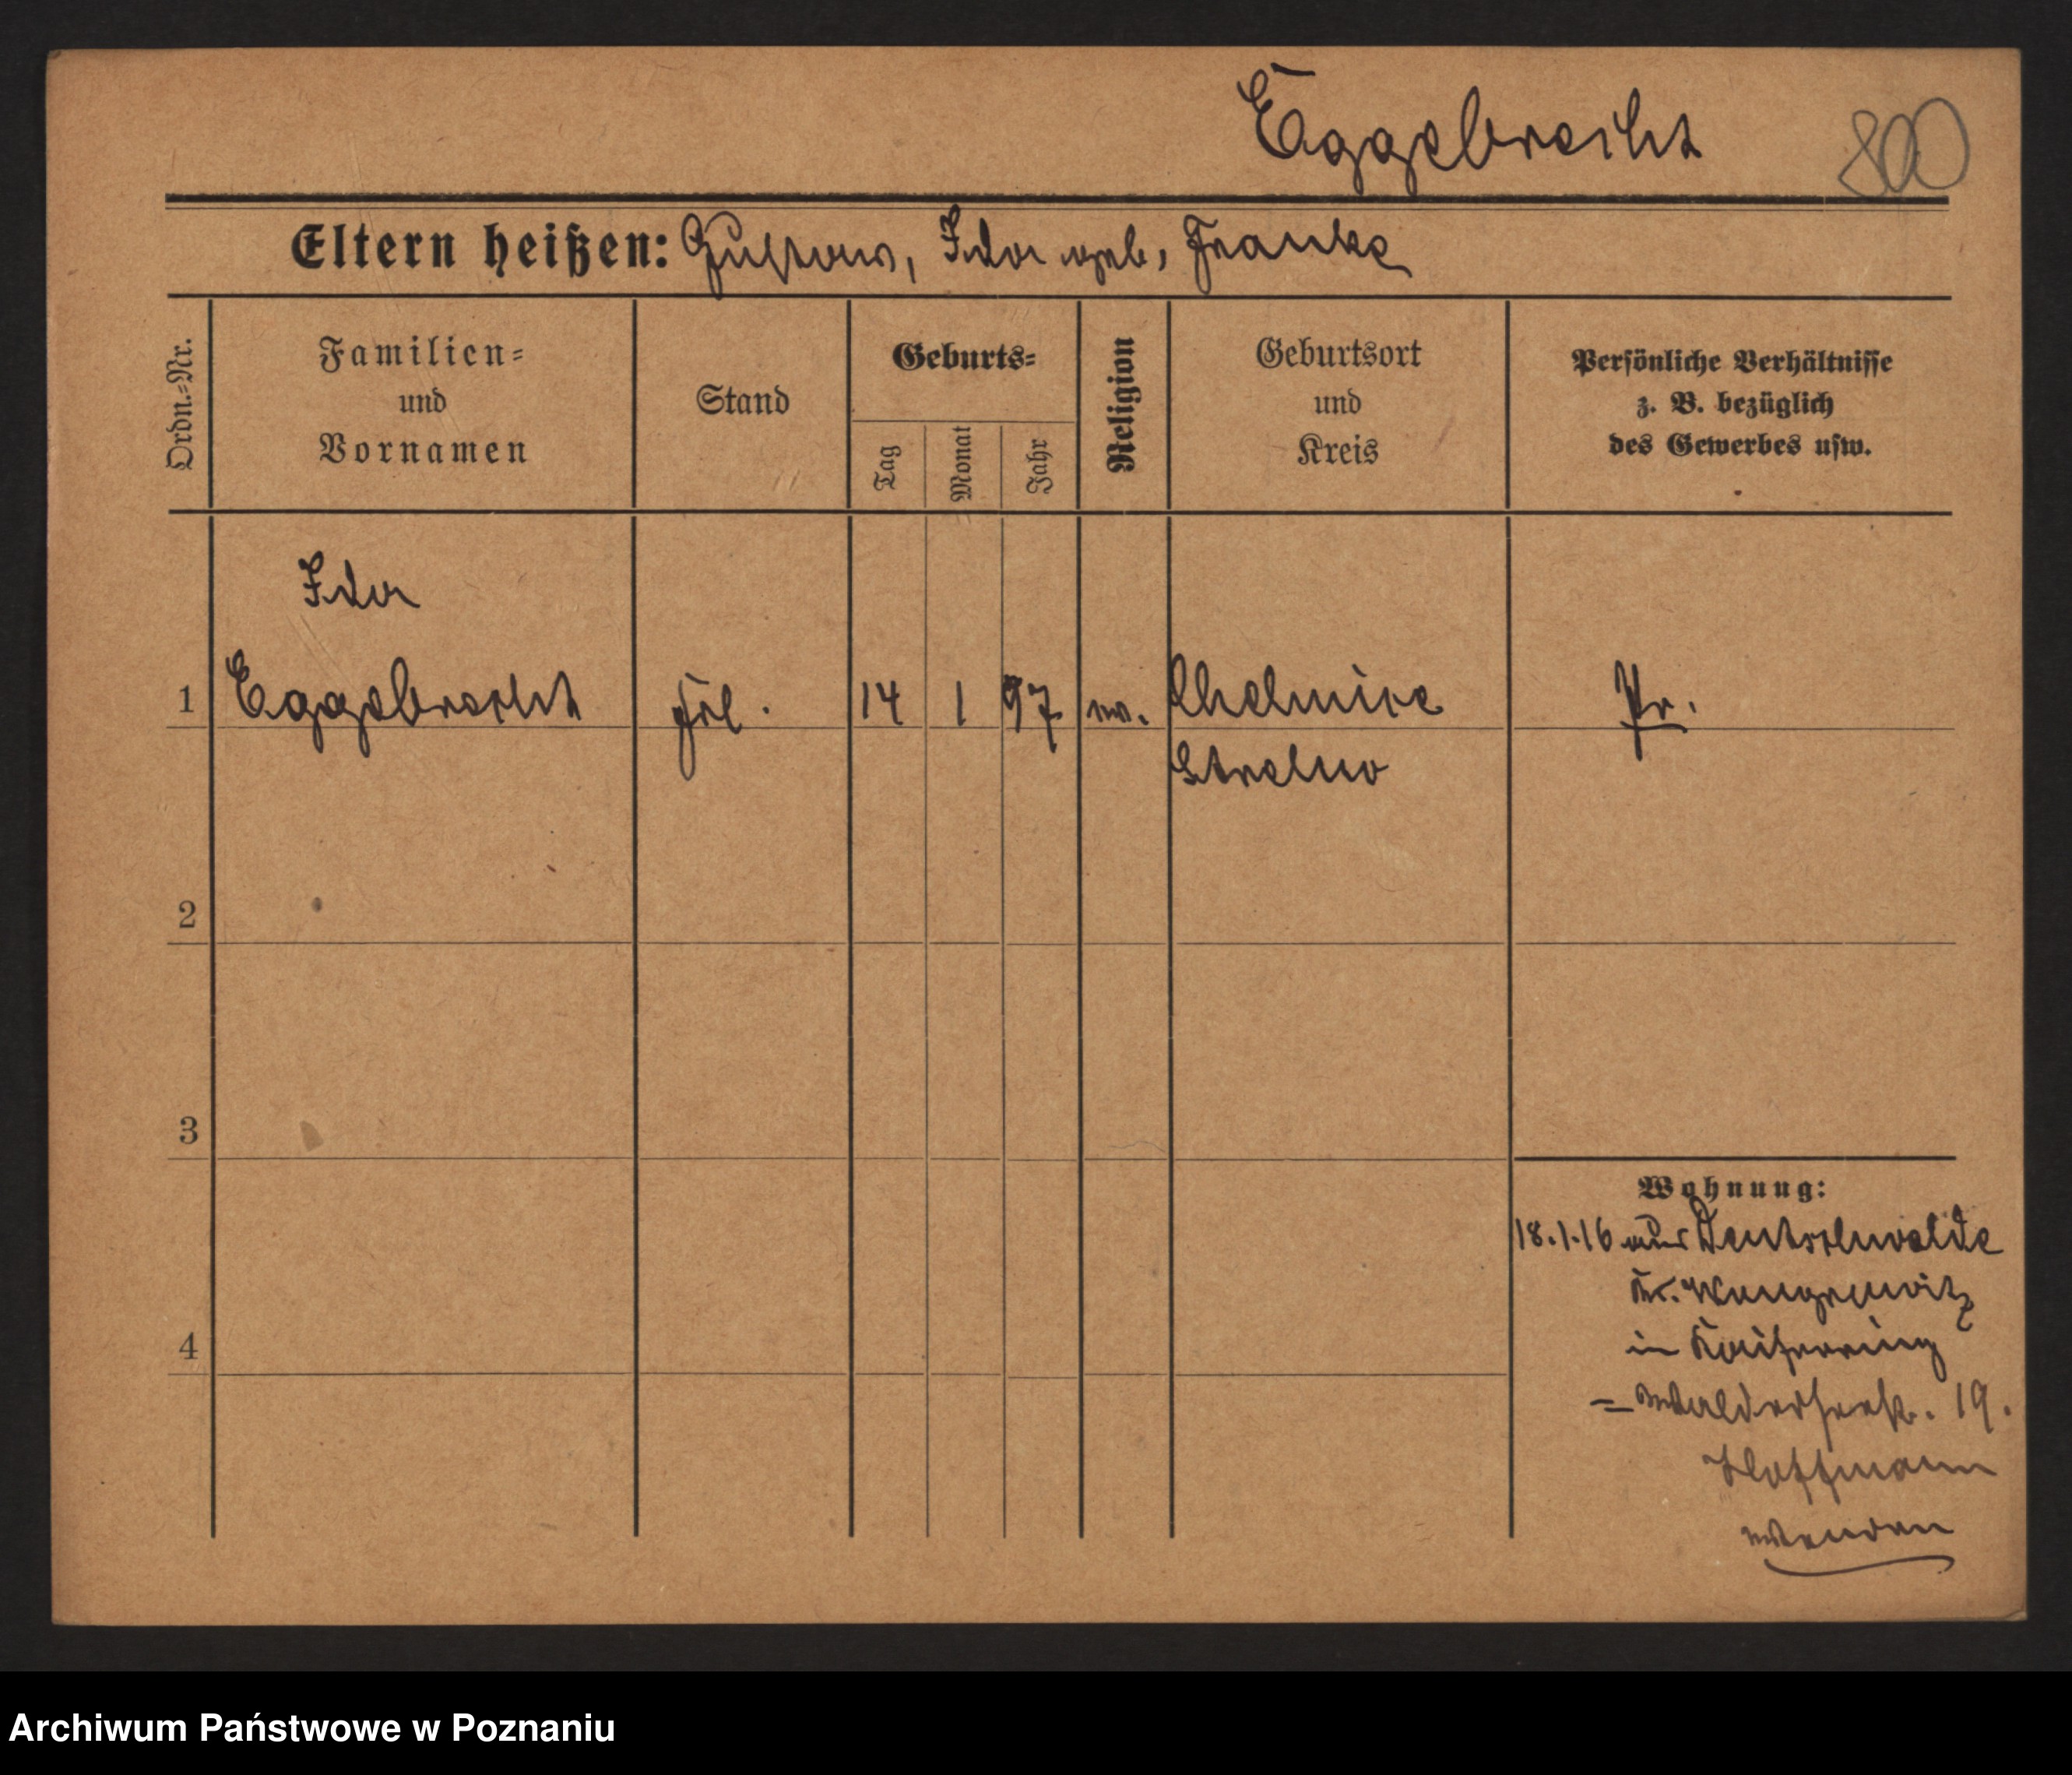 Eggebrecht 800
Eltern heißen: Gustav, Ida geb. Franke
Ordn.-Nr.
Familien-
und
Vornamen
Stand
Geburts-
Tag
Monat
Jahr
Religion
Geburtsort
und
Kreis
Persönliche Verhältnisse
z. B. bezüglich
des Gewerbes usw.
Ida
1 Eggebrecht 14 1 97 Chelmice Pr.
Strelno
2
3
4
Wohnung:
18.1.16 aus Deutschwalde
Kr. Wongrowitz
in Kaiserring
= Walderseestr. 19.
Hoffmann
Archiwum Państwowe w Poznaniu